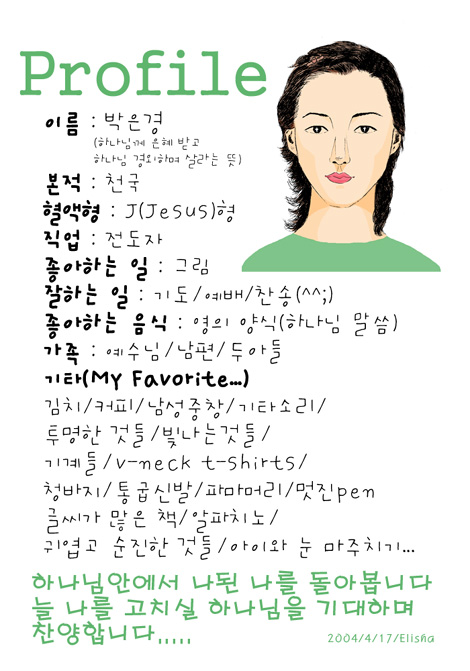 Profile
이름 : 박은경
(하나님께 은혜 받고
하나님 경외하며 살라는 뜻)
본적 : 천국
혈액형 : J(Jesus)형
직업 : 전도자
좋아하는 일 : 그림
잘하는 일 : 기도/예배/찬송(^^;)
좋아하는 음식 : 영의 양식(하나님 말씀)
가족 : 예수님/남편/두아들
기타(My Favorite...)
김치/커피/남성중창/기타소리/
투명한 것들/빛나는것들/
기계들/v-neck t-shirts/
청바지/통굽신발/파마머리/멋진pen
글씨가 많은 책/알파치노/
귀엽고 순진한 것들/아이와 눈 마주치기...
하나님안에서 나된 나를 돌아봅니다
늘 나를 고치실 하나님을 기대하며
찬양합니다.....
2004/4/17/Elisha